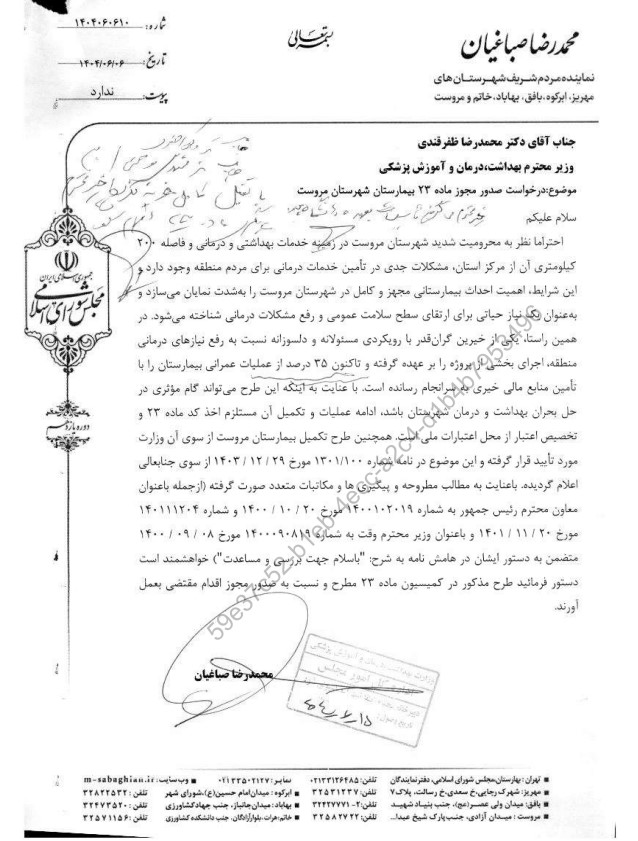 بسمه تعالی
شماره: ۱۴۰۴۰۶۰۶۱۰
تاریخ: ۱۴۰۴/۰۶/۰۶
پیوست: ندارد
محمدرضا صباغیان
نماینده مردم شریف شهرستان های
مهریز، ابرکوه، بافق، بهاباد، خاتم و مروست
جناب آقای دکتر محمدرضا ظفرقندی
وزیر محترم بهداشت،درمان و آموزش پزشکی
موضوع:درخواست صدور مجوز ماده ۲۳ بیمارستان شهرستان مروست
سلام علیکم
احتراما نظر به محرومیت شدید شهرستان مروست در زمینه خدمات بهداشتی و درمانی و فاصله ۲۰۰
کیلومتری آن از مرکز استان، مشکلات جدی در تأمین خدمات درمانی برای مردم منطقه وجود دارد و
این شرایط، اهمیت احداث بیمارستانی مجهز و کامل در شهرستان مروست را به‌شدت نمایان می‌سازد و
به‌عنوان یک نیاز حیاتی برای ارتقای سطح سلامت عمومی و رفع مشکلات درمانی شناخته می‌شود. در
همین راستا، یکی از خیرین گران‌قدر با رویکردی مسئولانه و دلسوزانه نسبت به رفع نیازهای درمانی
منطقه، اجرای بخشی از پروژه را بر عهده گرفته و تاکنون ۳۵ درصد از عملیات عمرانی بیمارستان را با
تأمین منابع مالی خیری به سرانجام رسانده است. با عنایت به اینکه این طرح می‌تواند گام مؤثری در
حل بحران بهداشت و درمان شهرستان باشد، ادامه عملیات و تکمیل آن مستلزم اخذ کد ماده ۲۳ و
تخصیص اعتبار از محل اعتبارات ملی است. همچنین طرح تکمیل بیمارستان مروست از سوی آن وزارت
مورد تأیید قرار گرفته و این موضوع در نامه شماره ۱۳۰۱/۱۰۰ مورخ ۲۹ / ۱۲ / ۱۴۰۳ از سوی جنابعالی
اعلام گردیده. باعنایت به مطالب مطروحه و پیگیری ها و مکاتبات متعدد صورت گرفته (ازجمله باعنوان
معاون محترم رئیس جمهور به شماره ۱۴۰۰۱۰۲۰۱۹ مورخ ۲۰ / ۱۰ / ۱۴۰۰ و شماره ۱۴۰۱۱۱۲۰۴
مورخ ۲۰ / ۱۱ / ۱۴۰۱ و باعنوان وزیر محترم وقت به شماره ۱۴۰۰۰۹۰۸۱۹ مورخ ۰۸ / ۰۹ / ۱۴۰۰
متضمن به دستور ایشان در هامش نامه به شرح: "باسلام جهت بررسی و مساعدت") خواهشمند است
دستور فرمائید طرح مذکور در کمیسیون ماده ۲۳ مطرح و نسبت به صدور مجوز اقدام مقتضی بعمل
آورند.
محمدرضا صباغیان
جمهوری اسلامی ایران
مجلس شورای اسلامی
دوره یازدهم
تهران: بهارستان،مجلس شورای اسلامی، دفترنمایندگان تلفن: ۰۲۱۳۳۱۲۶۴۸۵ نمابر: ۰۲۱۳۳۵۰۲۱۲۷ وب سایت: m-sabaghian.ir
مهریز: شهرک رجایی،خ سعدی،خ رسالت، پلاک۷ تلفن: ۳۲۵۳۱۲۳۷ ابرکوه: میدان امام حسین(ع)،شورای شهر تلفن: ۳۲۸۲۲۵۳۲
بافق: میدان ولی عصر(عج)، جنب بنیاد شهید تلفن: ۲-۳۲۴۲۷۷۷۱ بهاباد: میدان جانباز، جنب جهادکشاورزی تلفن: ۳۲۴۷۳۵۲۰
مروست: میدان آزادی، جنب پارک شیخ عبدا... تلفن: ۳۲۵۸۲۷۲۲ خاتم:هرات، بلوارآزادگان، جنب دانشکده کشاورزی تلفن: ۳۲۵۷۱۱۵۶